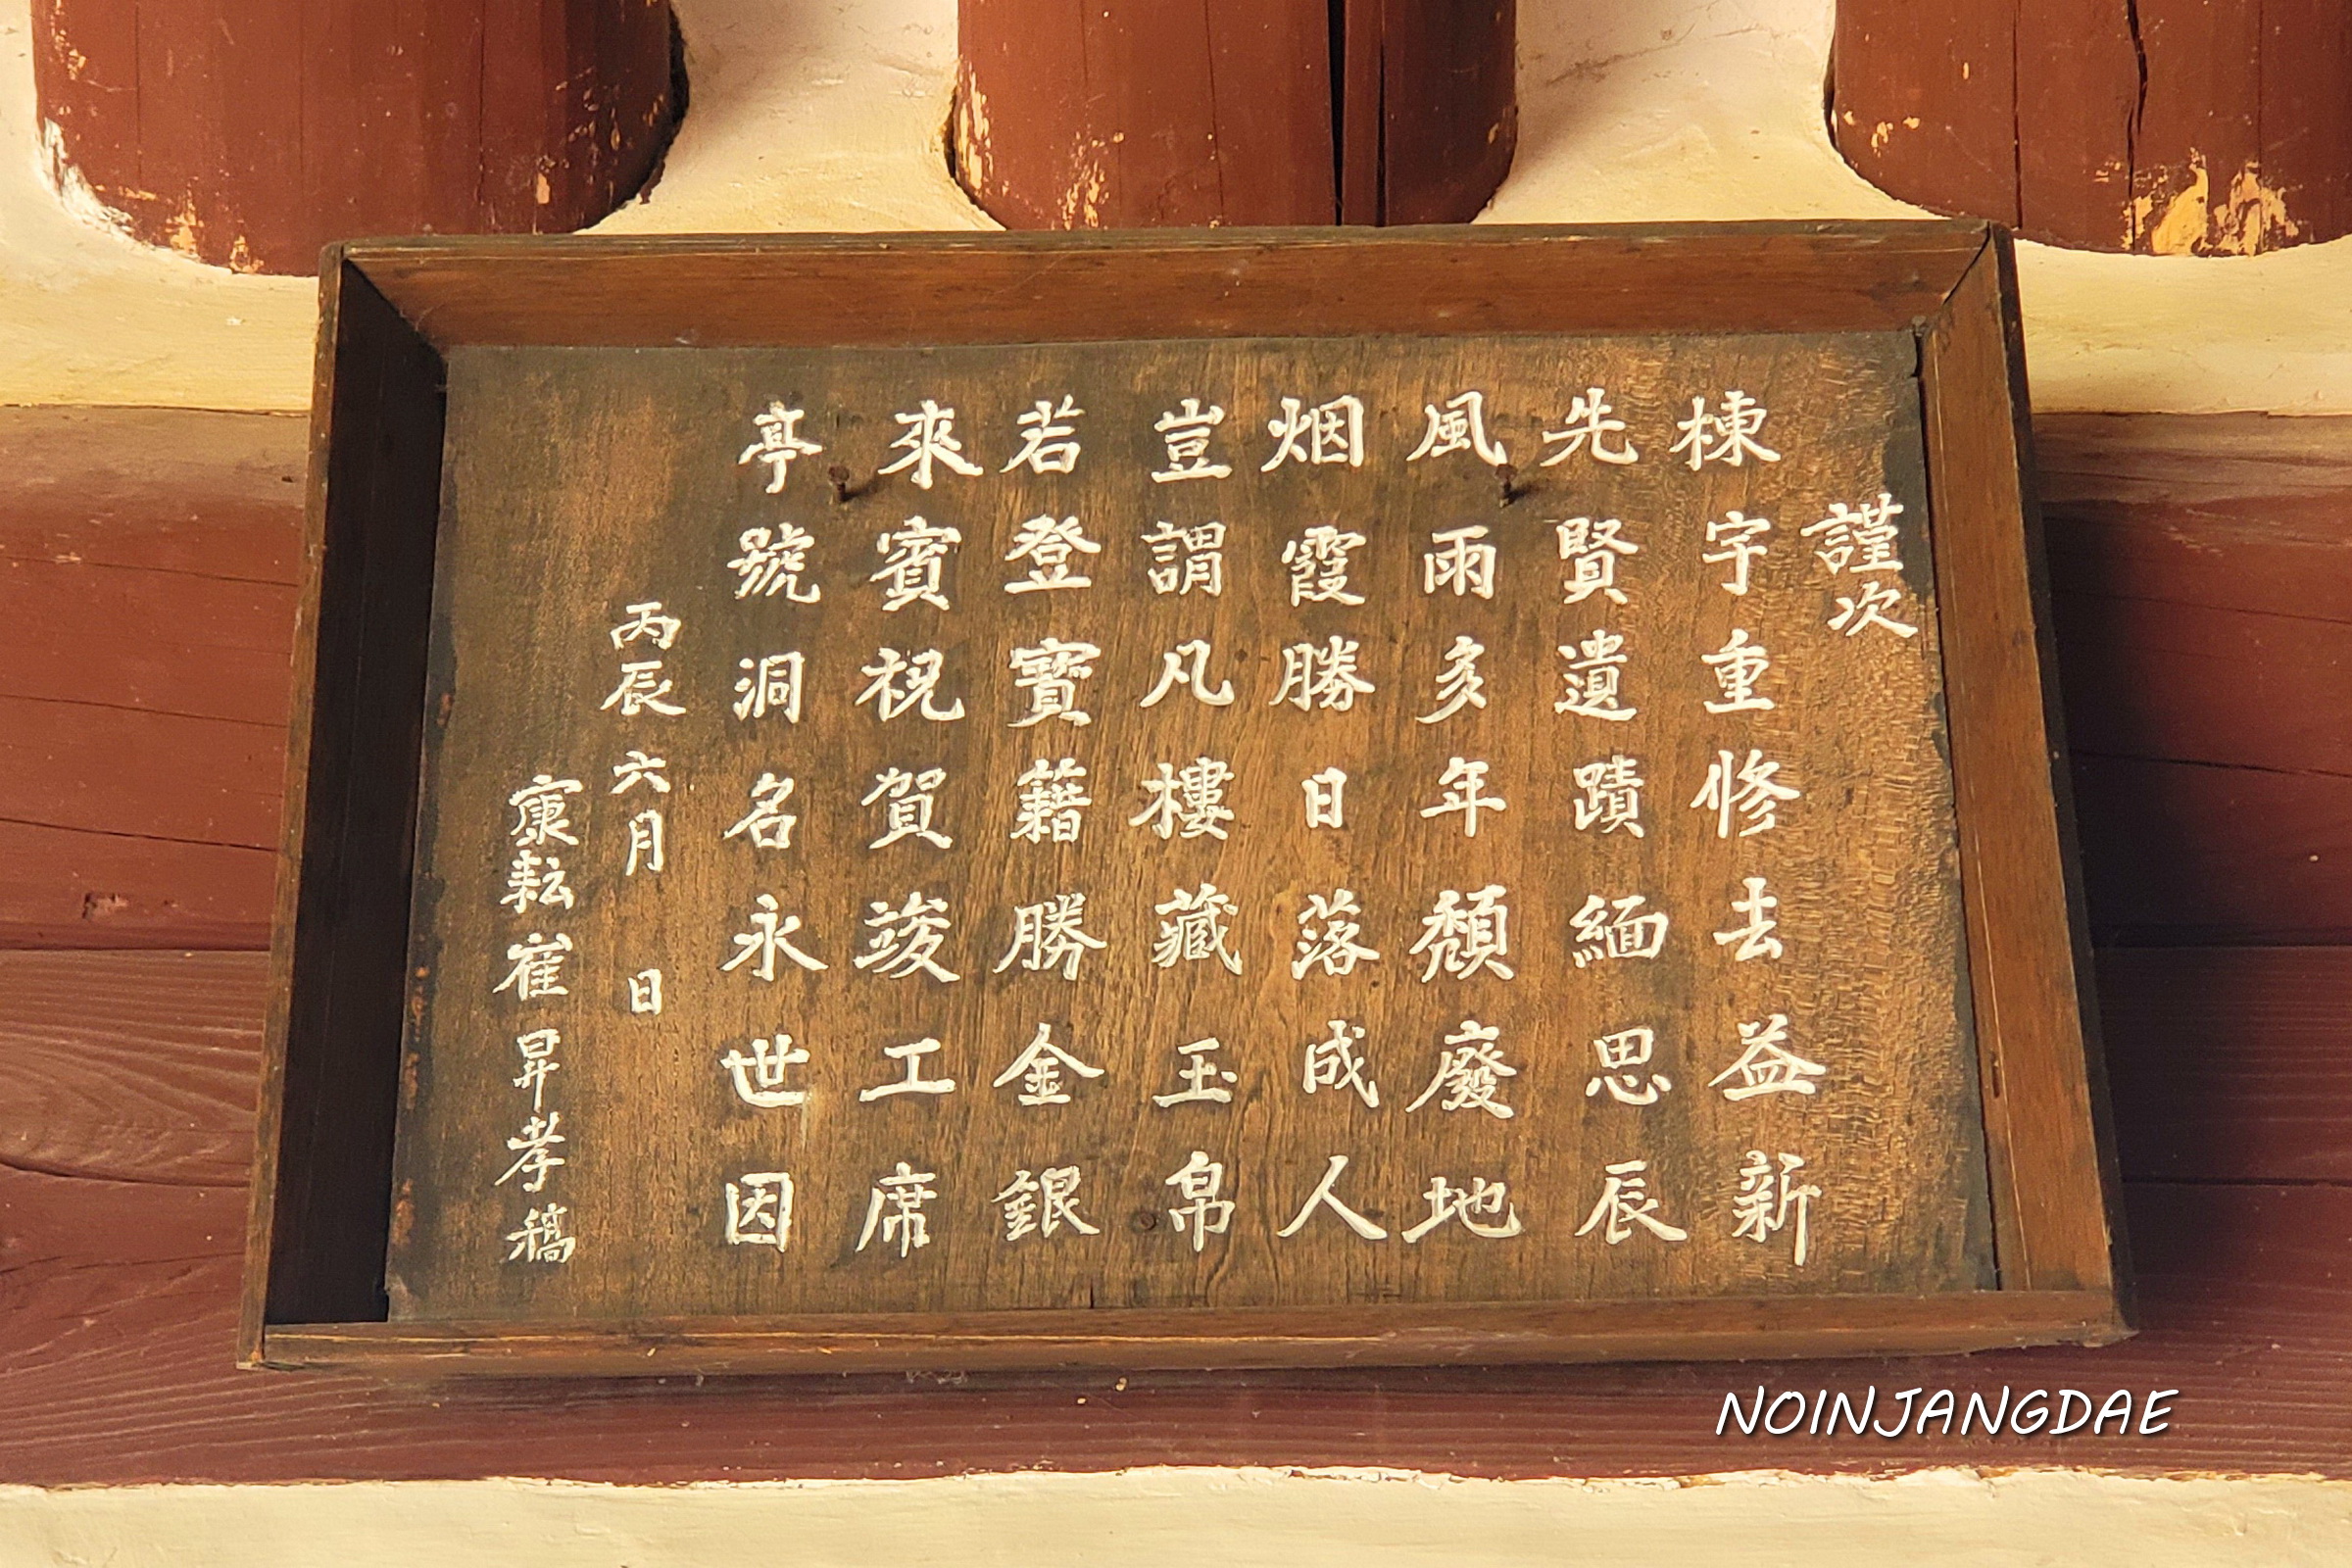 謹次
棟宇重修去益新
先賢遺蹟緬思辰
風雨多年頹廢地
烟霞勝日落成人
豈謂凡樓藏玉帛
若登寶籍勝金銀
來賓祝賀竣工席
亭號洞名永世因
丙辰六月日
康耘崔昇孝稿
NOINJANGDAE